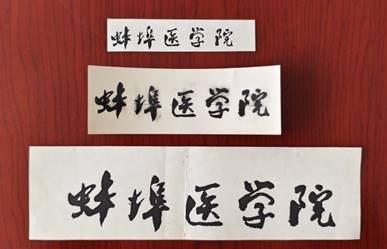 蚌埠医学院
蚌埠医学院
蚌埠医学院